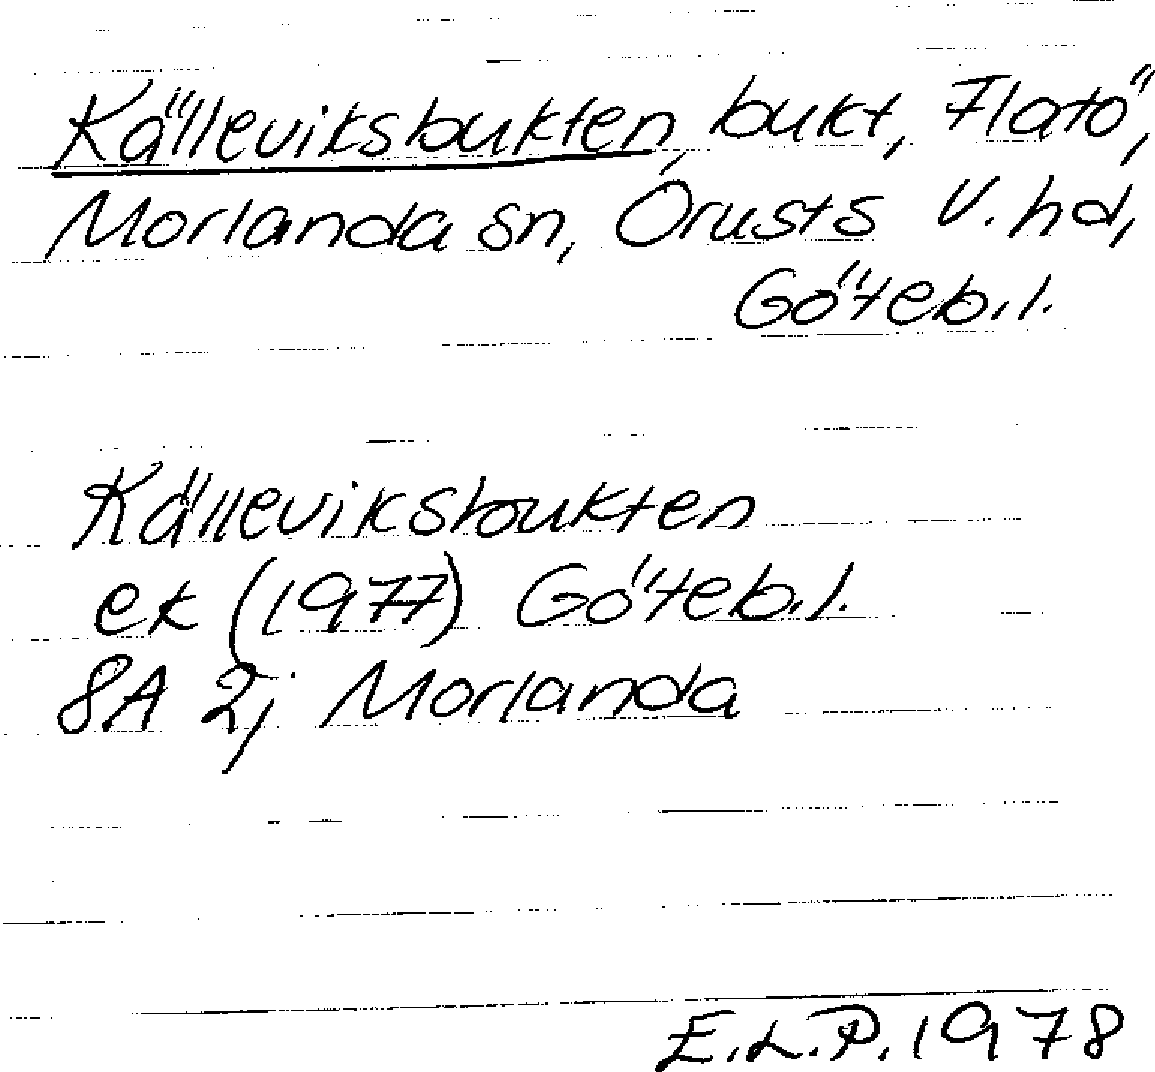 Källeviksbukten, bukt, Flatö,
Morlanda sn, Orusts V. hd,
Göteb.l.
Källeviksbukten
ek (1977) Göteb.l.
8A 2j Morlanda
E.L.P. 1978